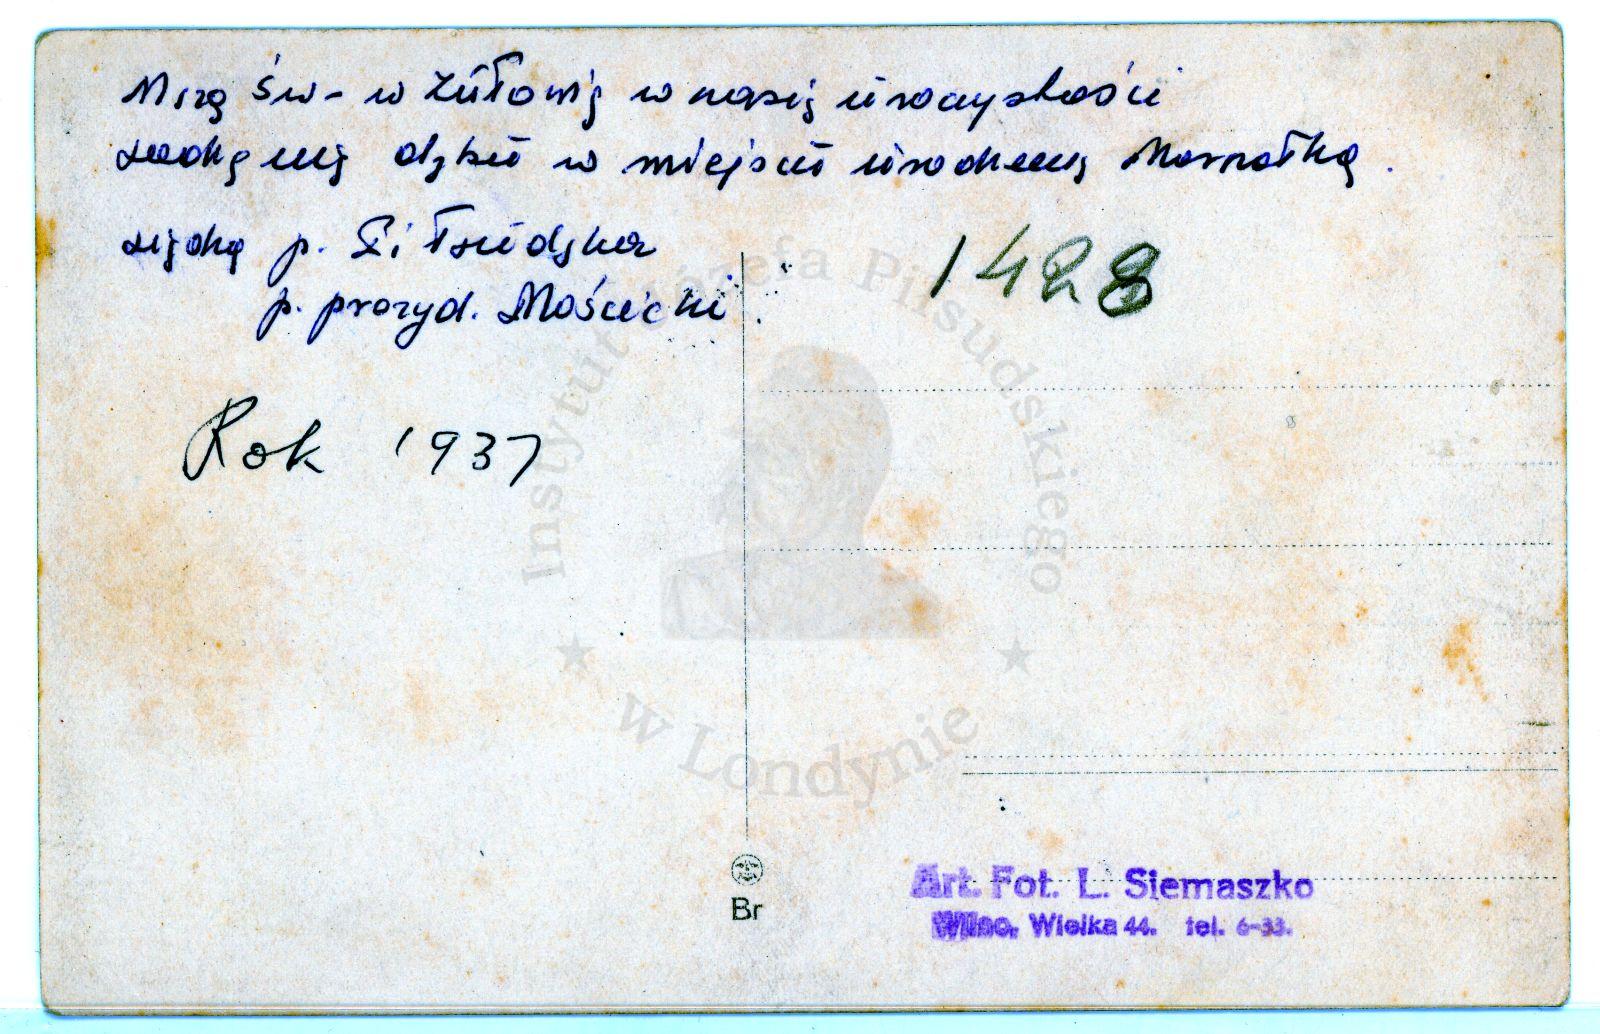 Mszę św- w Zułowie w czasie uroczystości
sadzenia dębu w miejscu urodzenia Marszałka.
siedzą p. Piłsudska
p. prezyd. Mościcki.
Rok 1937
1428
Instytut Józefa Piłsudskiego
w Londynie
Br
Art. Fot. L. Siemaszko
Wilno, Wielka 44. tel. 6-33.